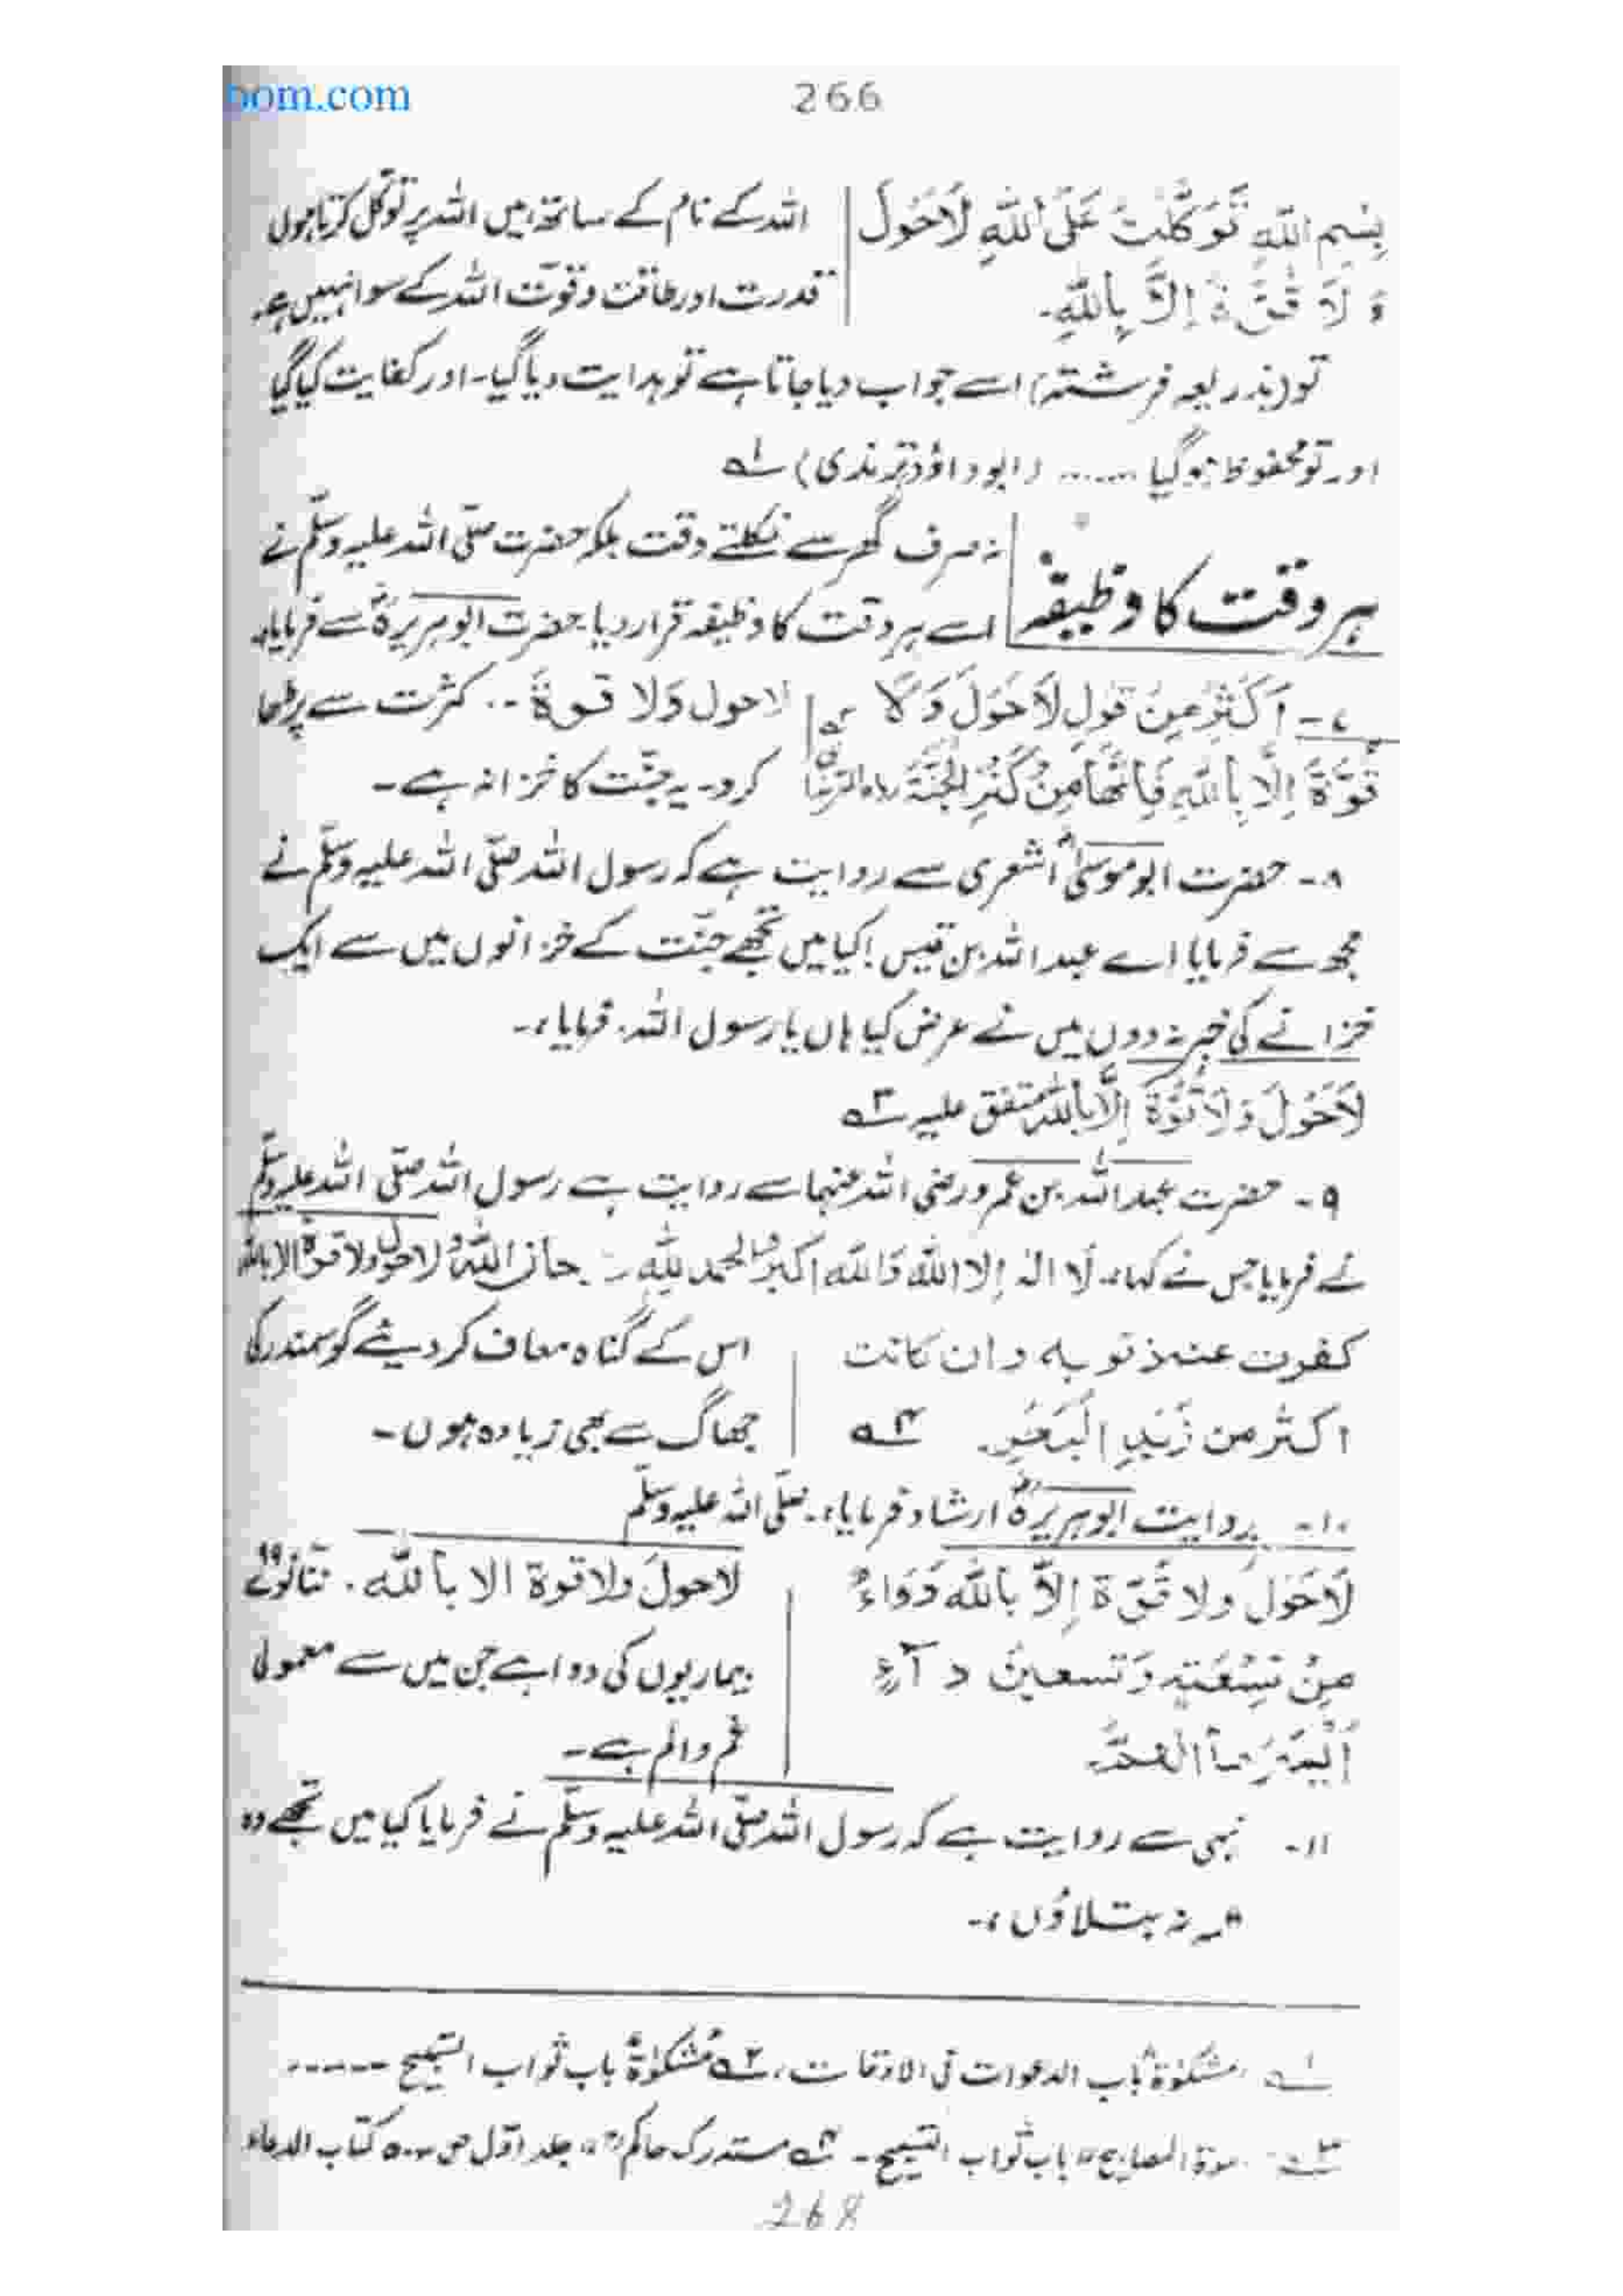 bom.com
266
بِسْمِ اللّٰهِ تَوَكَّلْتُ عَلَى اللّٰهِ لَاحَوْلَ
وَ لَا قُوَّةَ اِلَّا بِاللّٰهِ۔
اللہ کے نام کے ساتھ، میں اللہ پر توکّل کرتا ہوں
قدرت اور طاقت و قوّت اللہ کے سوا نہیں ہے۔
تو (بذریعہ فرشتہ) اسے جواب دیا جاتا ہے تو ہدایت دیا گیا۔ اور کفایت کیا گیا
اور تو محفوظ ہو گیا ...... (ابو داؤد ترمذی) ۱؎
ہر وقت کا وظیفہ
نہ صرف گھر سے نکلتے وقت بلکہ حضرت صلّی اللہ علیہ وسلّم نے
اسے ہر وقت کا وظیفہ قرار دیا۔ حضرت ابوہریرہؓ سے فرمایا،۔
۷۔ اَكْثِرْ مِنْ قَوْلِ لَاحَوْلَ وَ لَا
قُوَّةَ اِلَّا بِاللّٰهِ فَاِنَّهَا مِنْ كَنْزِ الْجَنَّةِ
لا حول وَلا قوةَ .. کثرت سے پڑھا
کرو۔ یہ جنّت کا خزانہ ہے۔
۸۔ حضرت ابو موسیٰؓ اشعری سے روایت ہے کہ رسول اللہ صلّی اللہ علیہ وسلّم نے
مجھ سے فرمایا اے عبد اللہ بن قیس! کیا میں تجھے جنّت کے خزانوں میں سے ایک
خزانے کی خبر نہ دوں میں نے عرض کیا ہاں یا رسول اللہ۔ فرمایا،۔
لَاحَوْلَ وَلَاقُوَّةَ اِلَّا بِاللّٰه متفق علیہ ۳؎
۹۔ حضرت عبد اللہ بن عمرو رضی اللہ عنہما سے روایت ہے رسول اللہ صلّی اللہ علیہ وسلّم
نے فرمایا جس نے کہا،۔ لَا الٰهَ اِلا اللّٰه وَاللّٰه اکبر والحمد لِلّٰهِ حان اللّٰه ولاحول ولا قوة الا باللّٰه
کفرت عنه ذنوبه و ان کانت
اکثر من زَبَدِ الْبَحْرِ۔ ۴؎
اس کے گناہ معاف کر دیئے گو سمندر کی
جھاگ سے بھی زیادہ ہوں۔
۱۰۔ بروایت ابوہریرہؓ ارشاد فرمایا،۔ صلّی اللہ علیہ وسلّم
لَاحَوْلَ ولا قُوَّةَ اِلَّا بِاللّٰه دَوَاءٌ
مِنْ تِسْعَةٍ وَتسعینَ دَآءٍ
اَيْسَرُهَا الْهَمُّ۔
لاحولَ ولاقوة الا باللّٰه۔ ننانوے ۹۹
بیماریوں کی دوا ہے جن میں سے معمولی
غم و الم ہے۔
۱۱۔ نہی سے روایت ہے کہ رسول اللہ صلّی اللہ علیہ وسلّم نے فرمایا کیا میں تجھے وہ
نہ بتلاؤں،۔
۱؎ مشکوٰۃ باب الدعوات فی الاوقات، ۲؎ مشکوٰۃ باب ثواب التسبیح -----
۳؎ المصابیح باب ثواب التسبیح۔ ۴؎ مستدرک حاکم جلد اوّل ص کتاب الدعاء
268